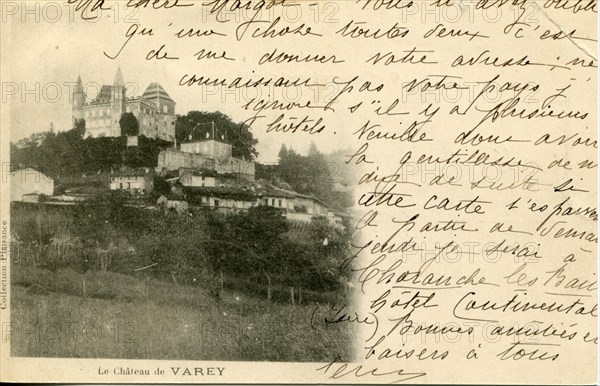 Ma chère Margot - Vous n'avez oublié
qu'une chose toutes deux c'est
de me donner votre adresse ; ne
connaissant pas votre pays j'
ignore s'il y a plusieurs
hôtels. Veuille donc avoir
la gentillesse de m
dire de suite si
cette carte t'est parvenue
A partir de
jeudi je serai à
Charanche les Bains
hôtel Continental
(Isère) Bonnes amitiés et
baisers à tous
Collection Plaisance
Le Château de VAREY